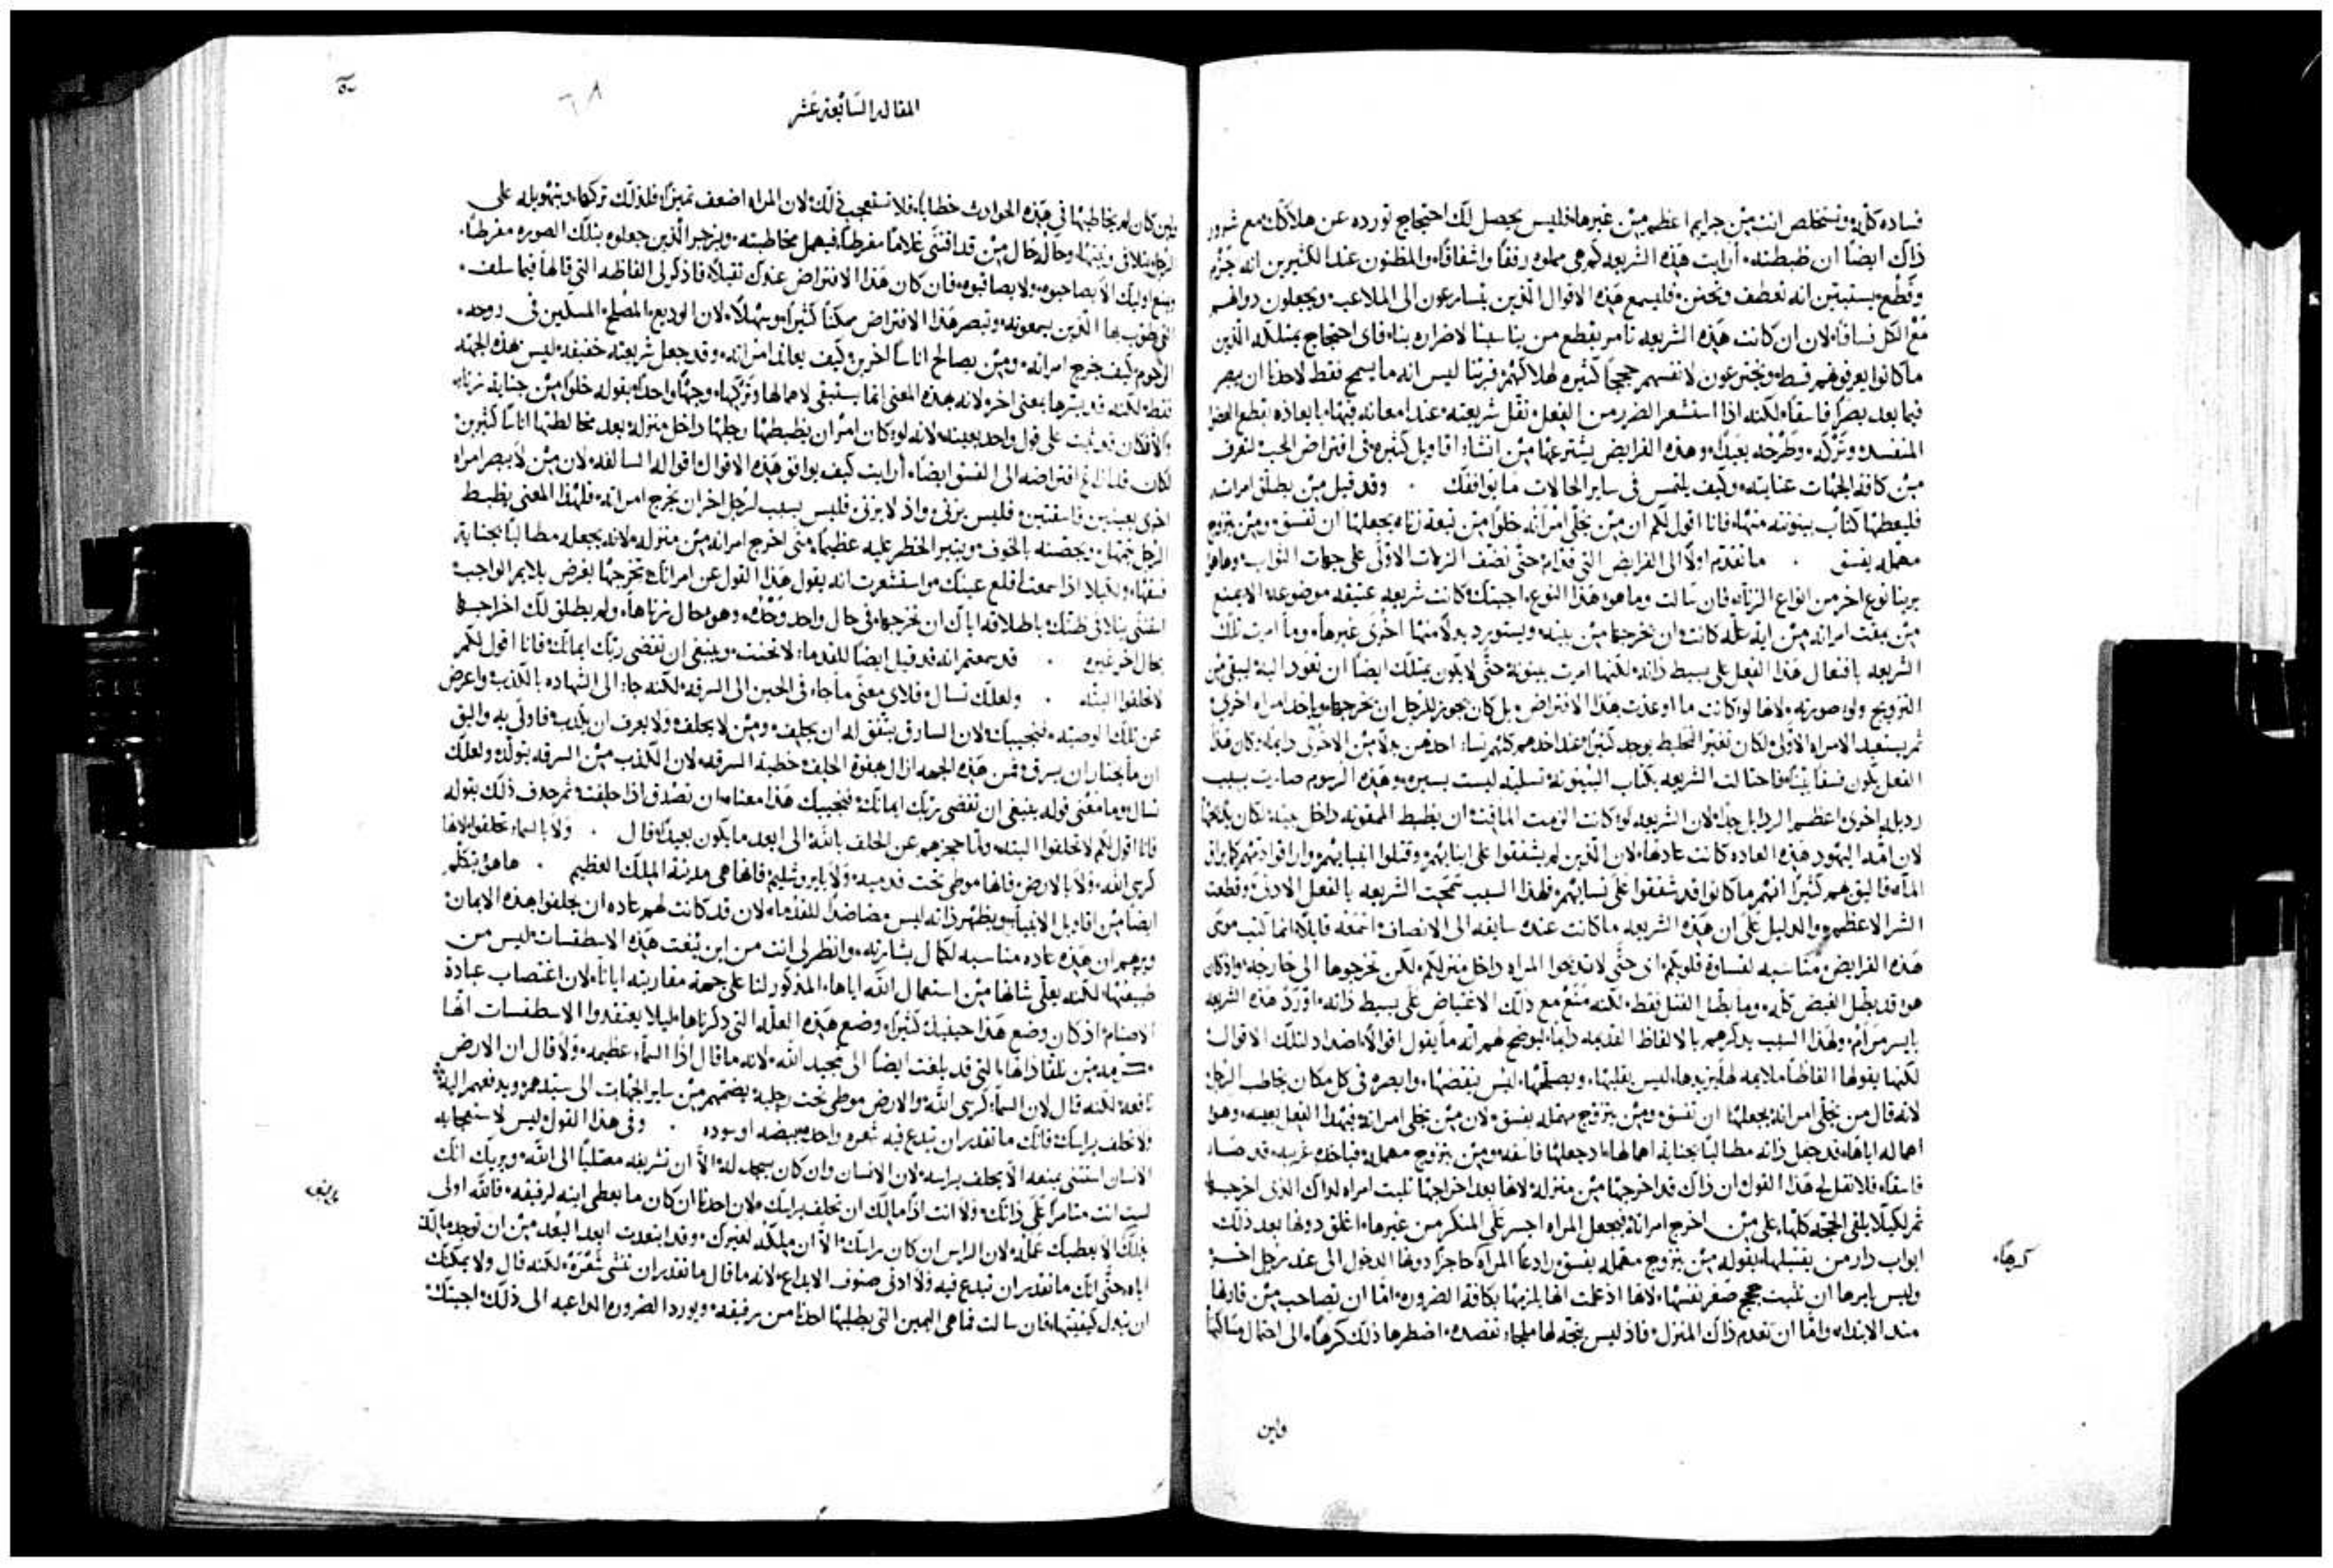 فساده كله وتستخلص انت من جرايم اعظم من غيرها فليس يحصل لك احتجاج تورده عن هلاكك مع شرور
ذاك ايضًا ان ظبطته أرايت هذه الشريعه كم هي مملوه رفقًا واشفاقًا والمظنون عند الكثيرين انه جزم
وقطع يستبين انه تعطف وتحنن فليسمع هذه الاقوال الذين يتسارعون الى الملاعب ويجعلون ذواتهم
مع الكل فساقًا لان ان كانت هذه الشريعه تامر بقطع من يناسبنا لاضراره بنا فاي احتجاج يمتلكه الذين
ما كانوا يعرفونهم قط ويخترعون لانفسهم حججًا كثيره لهلاكهم قربنا ليس انه ما يسمح فقط لاحدنا ان يبصر
فيما بعد بصرًا فاسقًا لكنه اذا استشعر الضرر من الفعل نقل شريعته عند امعانه فيها بايعازه بقطع العضو
المنفسد وتركه وطرحه بعيدًا وهذه الفرايض يشترعها من انشاء اقاويل كثيره في افتراض الحب لتعرف
من كافة الجهات عنايته وكيف يلتمس في ساير الحالات ما يوافقك . وقد قيل من يطلق امراته
فليعطها كتاب بينونته منها فانا اقول لكم ان من يخلي امراته خلوًا من تبعة زناه يجعلها ان تفسق ومن يتزوج
مهمله يفسق . ما تقدم اولًا الى الفرايض التي قدام حتى نضف الزلات الاولى على جهات الثواب وها هو
يرينا نوع اخر من انواع الزنا فان سالت وما هو هذا النوع اجبتك كانت شريعه عتيقه موضوعه الا يمنع
من يمقت امراته من اية عله كانت ان يخرجها من بيته ويستورد بدلًا منها اخرى غيرها وما امرت تلك
الشريعه بافتعال هذا الفعل على بسيط ذاته لكنها امرت ببينونة حتى لا يكون يمتلك ايضًا ان تعود اليه ليبقى من
التزويج ولو صورته لانها لو كانت ما اوعزت هذا الافتراض بل كان يجوز للرجل ان يخرجها وياخذ امراه اخرى
ثم يستعيد الامراه الاولى لكان تغير التخليط يوجد كثيرًا عند اخذهم كلهم نساء احدهن بدلًا من الاخرى دايمًا وكان هذا
الفعل يكون فسقًا بينًا فاحتالت الشريعه بكتاب البينونة تسليه ليست يسيره وهذه الرسوم صارت بسبب
رذيله اخرى اعظم الرذايل جدًا لان الشريعه لو كانت الزمت الماقت ان يظبط الممقوته داخل بيته لكان يذبحها
لان امة اليهود هذه العاده كانت عادتها لان الذين لم يشفقوا على ابنايهم وقتلوا انبيايهم واراقوا دمهم كما يراق
الما فاليق بهم كثيرًا انهم ما كانوا قد شفقوا على نسايهم فلهذا السبب سمحت الشريعه بالفعل الادنى وقطعت
الشر الاعظم والدليل على ان هذه الشريعه ما كانت عنده سابقه الى الانصاف اسمعه قايلًا انما كتب موسى
هذه الفرايض مناسبه لقساوة قلوبكم اي حتى لا تذبحوا المراه داخل منزلكم لكن تخرجوها الى خارجه واذ كان
هو قد بطل الغيض كله وما بطل القتل فقط لكنه منع مع ذلك الاغتياض على بسيط ذاته اورد هذه الشريعه
بايسر مرام ولهذا السبب يذكرهم بالالفاظ القديمه دايمًا ليوضح لهم انه ما يقول اقوالًا اضداد لتلك الاقوال
لكنها يقولها الفاظًا ملايمه لها يزيدها ليس يقلبها ويصلحها ليس ينقضها وابصره في كل مكان يخاطب الرجل
لانه قال من يخلي امراته يجعلها ان تفسق ومن يتزوج مهمله يفسق لان من يخلي امراته فبهذا الفعل بعينه وهو
اهماله اياها قد جعل ذاته مطالبًا بجناية اهمالها اذ جعلها فاسقه ومن يتزوج مهمله فباخذه غريبه قد صار
فاسقًا فلا تقل لي هذا القول ان ذاك قد اخرجها من منزله لانها بعد اخراجها تلبث امراه لذاك الذي اخرجها
ثم لكيلا يلقي الحجة كلها على من اخرج امراته فيجعل المراه اجسر على المنكر من غيرها اغلق دونها بعد ذلك
ابواب دار من يقتبلها بقوله من يتزوج مهمله يفسق رادعًا المراه حاجزًا دونها الدخول الى عند رجل اخر
وليس يامرها ان تلبث حجج صغر نفسها لانها اذ علمت انها يلزمها بكافة الضروره اما ان تصاحب من قارنها
منذ الابتداء واما ان تعدم ذاك المنزل فاذ ليس يتجه لها ملجاء تقصده اضطرها ذلك كرهًا الى احتمال مساكنها
كرهًا
واين
المقاله السابعة عشر
٦٨
ولين كان لم يخاطبها في هذه الحوادث خطابًا فلا تستعجب ذلك لان المراه اضعف تمييزًا فلذلك تركها وبتهويله على
الرجل يتلافى ونيتها وحاله حال من قد اقتنى غلامًا مفرطًا فيهمل مخاطبته ويزجر الذين جعلوه بتلك الصوره مفرطًا
ويمنع اوليك الا يصاحبوه ولا يصاقبوه فان كان هذا الافتراض عندك ثقيلًا فاذكر لي الفاظه التي قالها فيما سلف
التي طوب بها الذين يسمعونه وتبصر هذا الافتراض ممكنًا كثيرًا وسهلًا لان الوديع المصلح المسكين في روحه
الرحوم كيف يخرج امراته ومن يصالح اناسًا اخرين كيف يعاند امراته وقد جعل شريعته خفيفه ليس هذه الجهه
فقط لكنه قد يسرها بمعنى اخر لانه هذه المعني انما يستبقي لاهمالها وتركها وجهًا واحدًا بقوله خلوًا من جناية زناه
والا فكان قد ثبت على قول واحد بعينه لانه لو كان امر ان يظبطها رجلها داخل منزله بعد مخالطتها اناسًا كثيرين
لكان قد افتراضه الى الفسق ايضًا أرايت كيف يوافق هذه الاقوال اقواله السالفه لان من لا يبصر امراه
اخرى بعينين فاسقتين فليس يزني واذ لا يزني فليس يسبب لرجل اخر ان يخرج امراته فلهذا المعنى يظبط
الرجل بتمهل ويحصنه بالخوف ويثير الخطر عليه عظيمًا متى اخرج امراته من منزله لانه يجعله مطالبًا بجناية
فسقها ولكيلا اذا سمعت اقلع عينك استشعرت انه يقول هذا القول عن امراتك تخرجها لغرض يلايم الواجب
بحال اخر غيره . قد سمعتم انه قد قيل ايضًا للقدما لا تحنث وينبغي ان تقضي ربك ايمانك فانا اقول لكم
لا تحلفوا البته . ولعلك تسال فلاي معنى ما جاء في الحين الى السرقه لكنه جاء الى الشهاده بالكذب واعرض
عن تلك الوصيه فنجيبك لان السارق يتفق له ان يحلف ومن لا يحلف ولا يعرف ان يكذب فاولى به واليق
ان ما يختار ان يسرق فمن هذه الجهه ازال بهفوة الحلف خطية السرقه لان الكذب من السرقه يتولد ولعلك
تسال وما معنى قوله ينبغي ان تقضي ربك ايمانك فنجيبك هذا معناه ان تصدق اذا حلفت ثم حذف ذلك بقوله
فانا اقول لكم لا تحلفوا البته ولما حجزهم عن الحلف بالله الى ابعد ما يكون بعيدًا قال . ولا بالسماء تحلفوا لانها
كرسي الله ولا بالارض فانها موطى تحت قدميه ولا بايروشليم فانها هي مدينة الملك العظيم . ها هو يتكلم
ايضًا من اقاويل الانبيا ويظهر ذاته ليس مضاضدًا للقدما لان قد كانت لهم عاده ان يحلفوا هذه الايمان
ويوهم ان هذه عاده مناسبه لكمال بشارته وانظر لي انت من اين نُعت هذه الاسطقسات ليس من
طبيعتها لكنه يعلي شانها من استعمال الله اياها المذكور لنا على جهة مقاربته ايانا لان اغتصاب عبادة
الاصنام اذ كان وضع هذا حينيذ كثيرًا وضع هذه العله التي ذكرناها ليلا يعتقدوا الاسطقسات انها
من تلقا ذاتها التي قد بلغت ايضًا الى تمجيد الله لانه ما قال اذا السماء عظيمه ولا قال ان الارض
نافعه لكنه قال لان السماء كرسي الله والارض موطى تحت رجليه يضمهم من ساير الجهات الى سيدهم ويدفعهم اليه
ولا تحلف براسك فانك ما تقدر ان تبدع فيه شعره واحده مبيضه او سوده . وفي هذا القول ليس لاستعجابه
الانسان استثنى بمنعه الا يحلف براسه لان الانسان وان كان يسجد له الا ان تشريفه معتليًا الى الله ويريك انك
لست انت متامرًا على ذاتك ولا انت اذًا مالك ان تحلف براسك ولان احدنا ان كان ما يعطي ابنه لرفيقه فالله اولى
بذلك الا يعطيك عمله لان الراس ان كان راسك الا ان يملكه لغيرك وقد ابتعدت ابعد البعد من ان توجد مالك
اياه حتى انك ما تقدر ان تبدع فيه ولا ادنى صنوف الابداع لانه ما قال ما تقدر ان تنشي شعره لكنه قال ولا يمكنك
ان تبدل كيفيتها فان سالت فما هي اليمين التي يطلبها احدنا من رفيقه ويورد الضروره الداعيه الى ذلك اجبتك